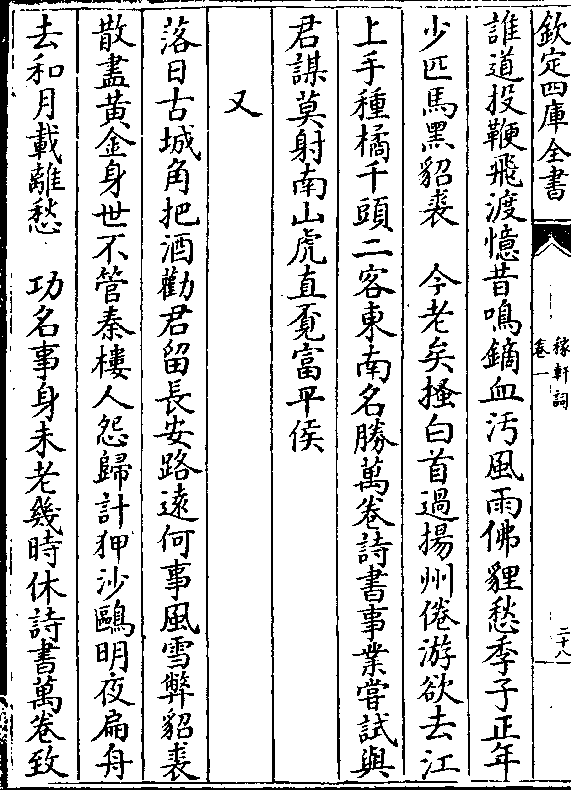 欽定四庫全書
稼軒詞
卷一
二十八
誰道投鞭飛渡憶昔鳴鏑血汚風雨佛貍愁季子正年
少匹馬黑貂裘　今老矣搔白首過揚州倦游欲去江
上手種橘千頭二客東南名勝萬卷詩書事業嘗試與
君謀莫射南山虎直覔富平侯
又
落日古城角把酒勸君留長安路逺何事風雪弊貂裘
散盡黃金身世不管秦樓人怨歸計狎沙鷗明夜扁舟
去和月載離愁　功名事身未老幾時休詩書萬卷致